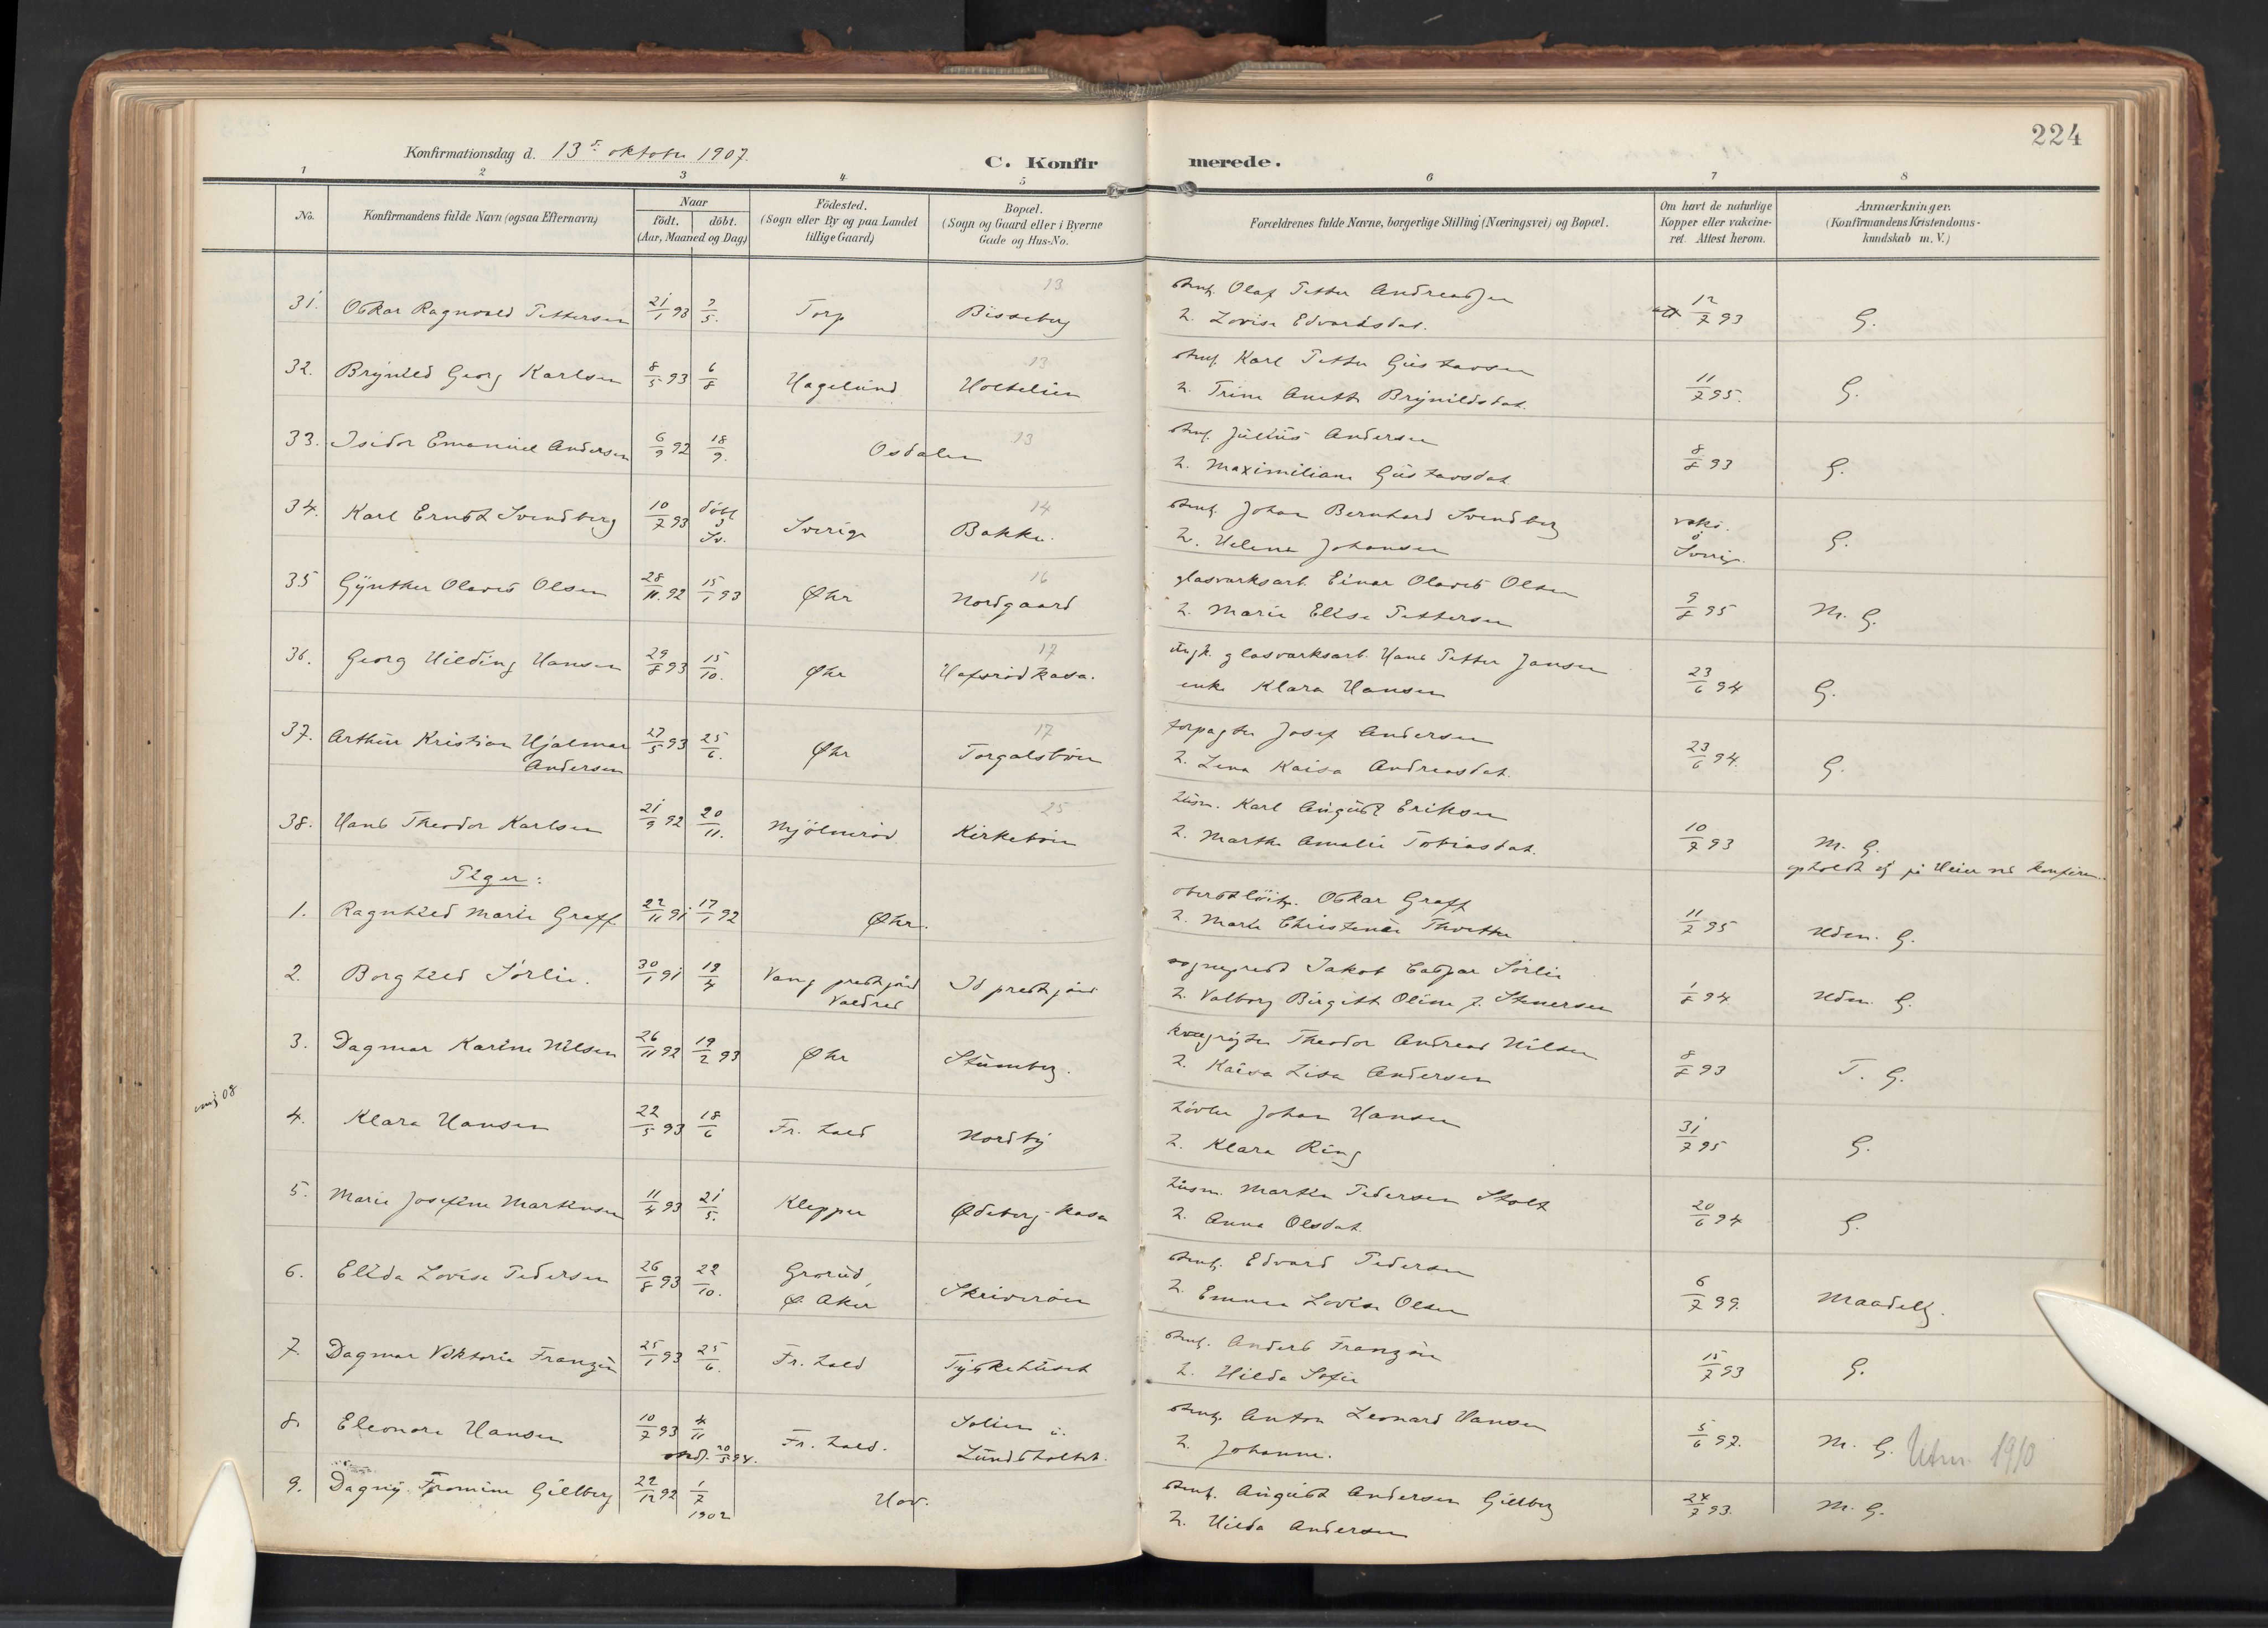 224
Konfirmationsdag d. 13de oktober 1907.
C. Konfirmerede.
1 2 3 4 5 6 7 8
No. Konfirmandens fulde Navn (ogsaa Efternavn) Naar födt. döbt. (Aar, Maaned og Dag) Födested. (Sogn eller By og paa Landet tillige Gaard) Bopæl. (Sogn og Gaard eller i Byerne Gade og Hus-No. Forældrenes fulde Navne, borgerlige Stilling (Næringsvei) og Bopæl. Om havt de naturlige Kopper eller vakcineret. Attest herom. Anmærkninger. (Konfirmandens Kristendomskundskab m. V.)
13
31. Oskar Ragnvald Pettersen 21/1 93 7/5. Torp Bisseberg stenh. Olaf Petter Andreassen att 12/7 93 G.
h. Lovise Edvardsdat.
13
32. Brynild Georg Karlsen 8/5 93 6/8 Hagelund Holtelien stenh. Karl Petter Gustavsen 11/7 95. G.
h. Trine Anette Brynildsdat.
13
33. Isidor Emanuel Andersen 6/9 92 18/9. Osdalen stenh. Julius Andersen 8/8 93 G.
h. Maximiliane Gustavsdat.
14
34. Karl Ernst Svendberg 10/7 93 döbt i Sv. Sverige Bakke. stenh. Johan Bernhard Svendberg vaks. i Sverige. G.
h. Helene Johansen
16
35 Gynther Olaves Olsen 28/11. 92 15/1 93 Øhr Nordgaard glasverksarb. Einar Olaves Olsen 9/8 95 M. G.
h. Marie Elise Pettersen
17
36. Georg Hilding Hansen 29/8 93 15/10. Øhr Hafsrödkasa. glasverksarb. Hans Petter Jansen 23/6 94 G.
enke Klara Hansen
17
37. Arthur Kristian Hjalmar Andersen 27/5 93 25/6. Øhr Torgalsböen forpagter Josef Andersen 23/6 94. G.
h. Lena Kaisa Andreasdat.
25
38. Hans Theodor Karlsen 21/9 92 20/11. Mjölneröd Kirkeböen husm. Karl August Eriksen 10/7 93 M. G.
h. Marthe Amalie Tobiasdat. opholdt sig på Veien ved konfirm..
Piger:
1. Ragnhild Marie Graff 22/11 91 17/1 92 Øhr. oberstlöitn. Oskar Graff 11/7 95 Udm. G.
h. Marie Christence
2. Borghild Sörlie. 30/1 91 19/4 Vang prestgjæld Valdres Id prestgjæld sogneprest Jakob Caspar Sörlie 1/8 94 Udm. G.
h. Valborg Birgitte Oline f. Stenersen
3. Dagmar Karine Nilsen 26/11 92 19/2 93 Øhr Stumberg. Theodor Andreas Nilsen 8/8 93 T. G.
h. Kaisa Lisa Andersen
08
4. Klara Hansen 22/5 93 18/6 Fr. hald Nordby hövler Johan Hansen 31/7 95 G.
h. Klara Ring
5. Marie Josefine Martinsen 11/4 93 21/5. Klepper Ødeberg-kasa husm. Martin Pedersen Stolt 20/6 94 G.
h. Anna Olsdat.
6. Elida Lovise Pedersen 26/8 93 22/10. Grorud, Ø. Aker Skriveröen stenh. Edvard Pedersen 6/7 99. Maadelig.
h. Emma Lovise Olsen
7. Dagmar Viktoria Franzén 25/1 93 25/6. Fr. hald Tyskehuset stenh. Anders Franzén 15/7 93 G.
h. Hilda Sofie
8. Eleonora Hansen 10/7 93 4/11 Fr. hald. Solien u. Lundsholtet. stenh. Anton Leonard Hansen 5/6 97. M. G. Utm. 1910
h. Johanne.
20/5 94.
9. Dagny Fromine Gillberg 22/12 92 1/7 1902 Hov. stenh. August Andersen Gillberg 24/7 93. M. G.
h. Hilda Andersen